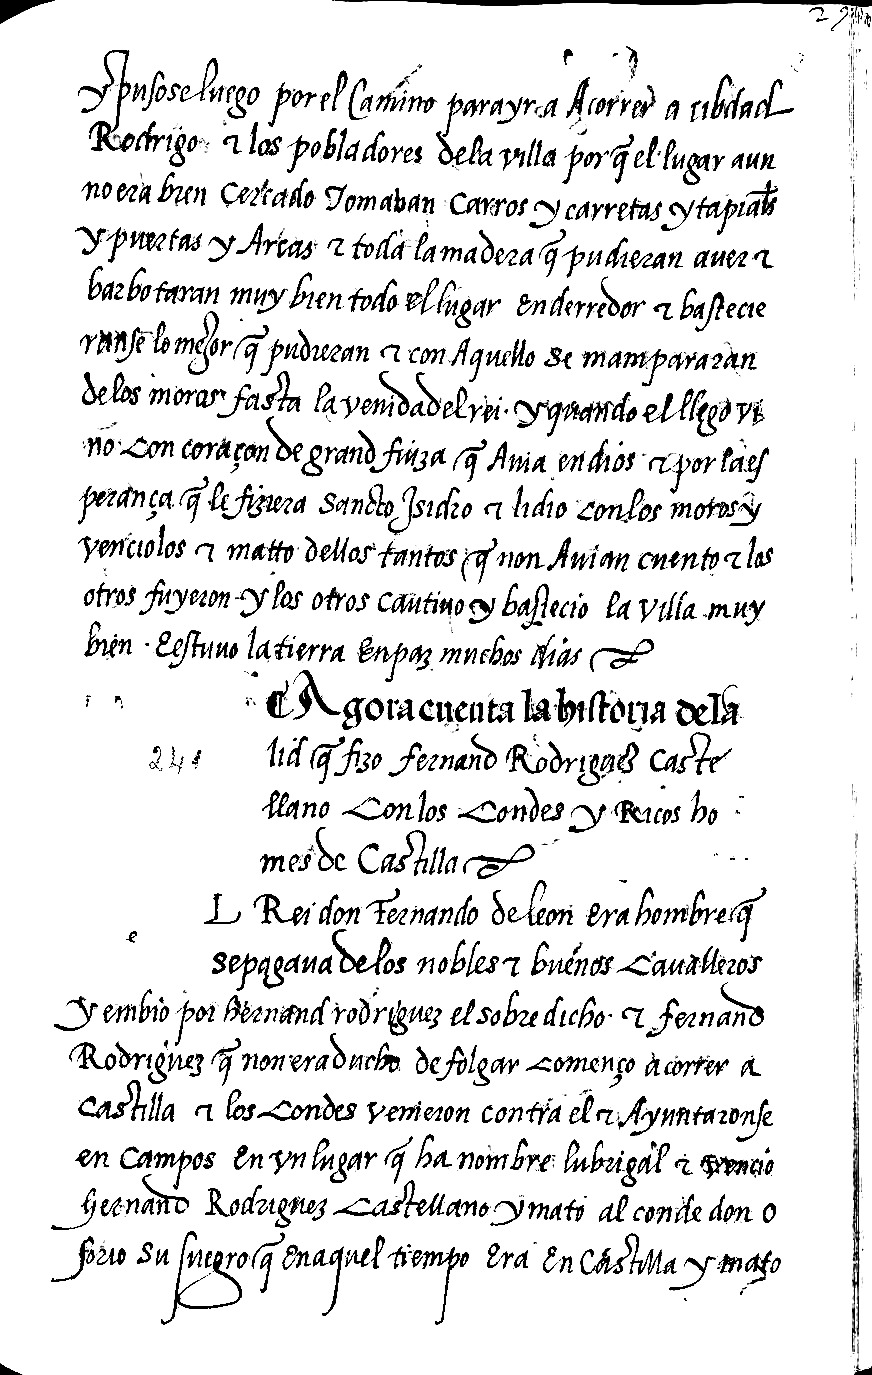 29
y pusose luego por el Camino para yr a Acorrer a cibdad
Rodrigo τ los pobladores dela villa por q̃ el lugar aun
no era bien Cercado Tomaban Carros y carretas y tapiales
y puertas y Arcas τ toda la madera q̃ pudieran auer τ
barbotaran muy bien todo el lugar enderredor τ bastecie
ranse lo mejor q̃ pudieran τ con Aquello se mampararan
delos moros fasta la venida del rei. y quando el llego vi
no Con coraçon de grand fiuza q̃ Auia en dios τ por la es
perança q̃ le fiziera Sancto Isidro τ lidio Con los moros y
venciolos τ matto dellos tantos q̃ non Auian cuento τ los
otros fuyeron y los otros cautiuo y bastecio la villa muy
bien. Estuuo la tierra en paz muchos dias
Agora cuenta la historia dela
241
lid q̃ fizo fernand Rodriguez Caste
llano Con los Condes y Ricos ho
mes de Castilla
L Rei don Fernando de leon era hombre q̃
e
se pagaua delos nobles τ buenos Caualleros
y embio por Hernand rodriguez el sobre dicho. τ fernand
Rodriguez q̃ non era ducho de folgar Començo a correr a
Castilla τ los Condes venieron contra el τ Ayuntaronse
en Campos en vn lugar q̃ ha nombre lubrigal τ vencio
Hernand Rodriguez Castellano y mato al conde don O
sorio su suegro q̃ en aquel tiempo era en Castilla y mato